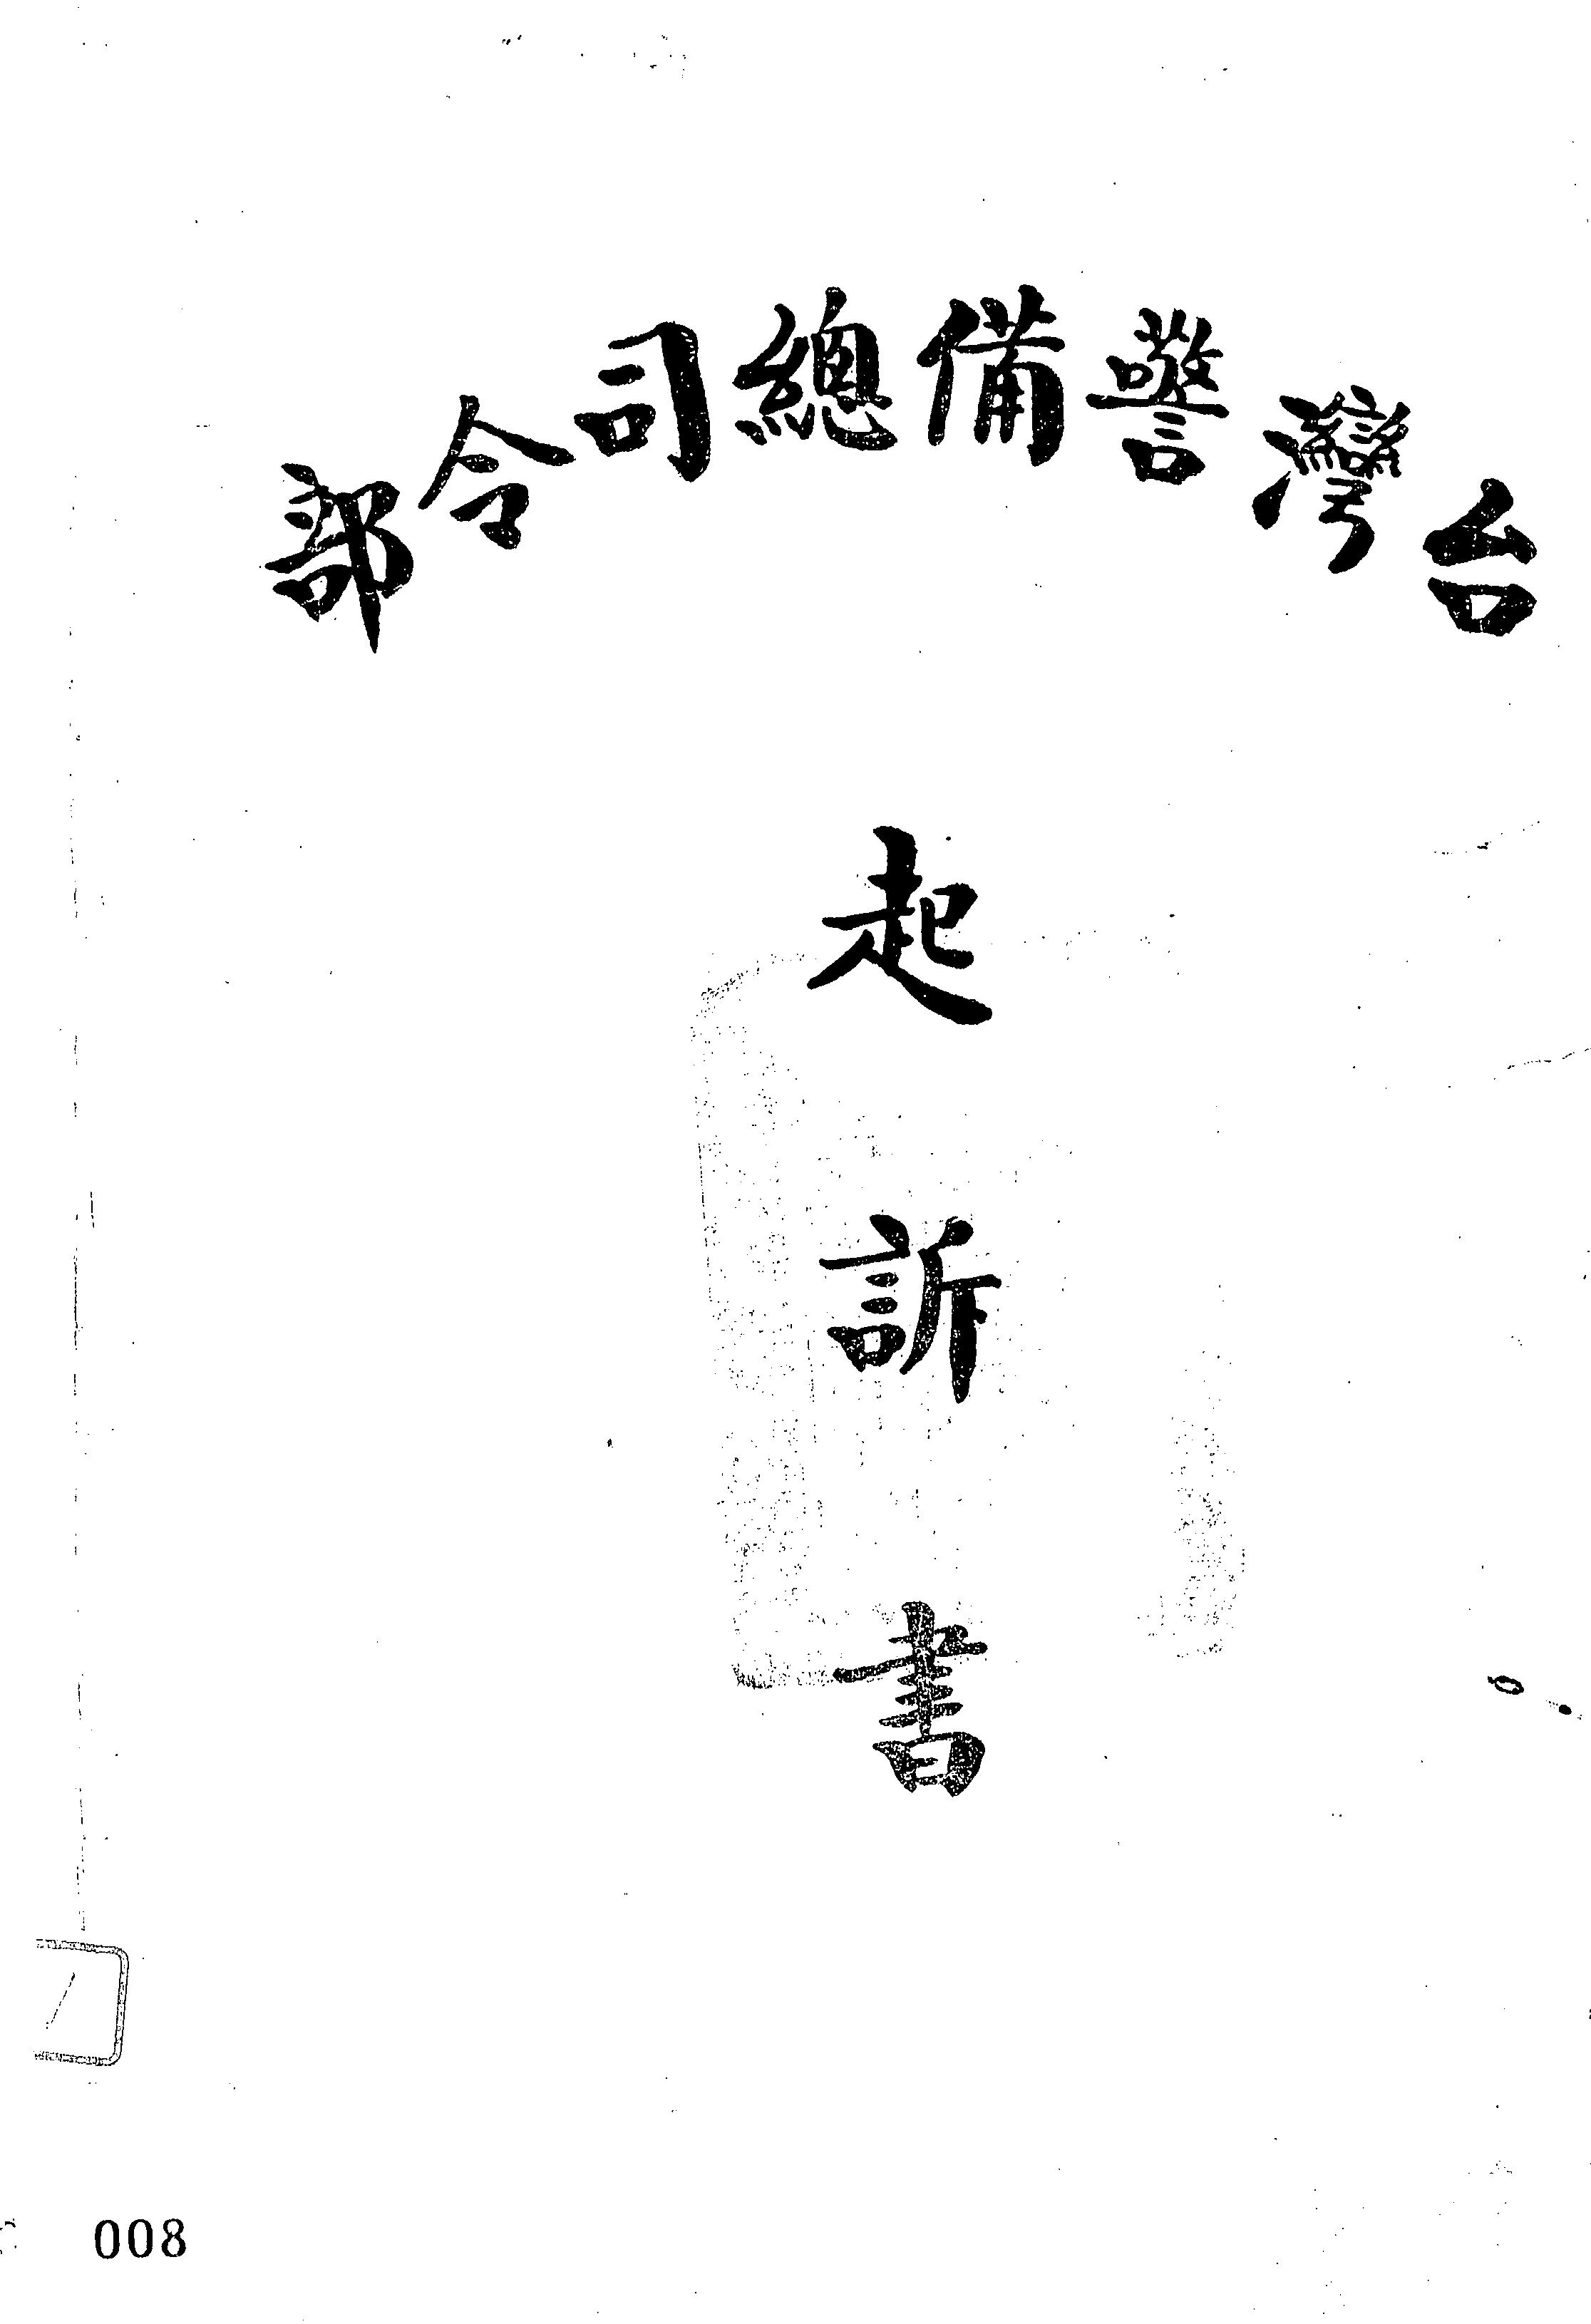 台灣警備總司令部
起訴書
008